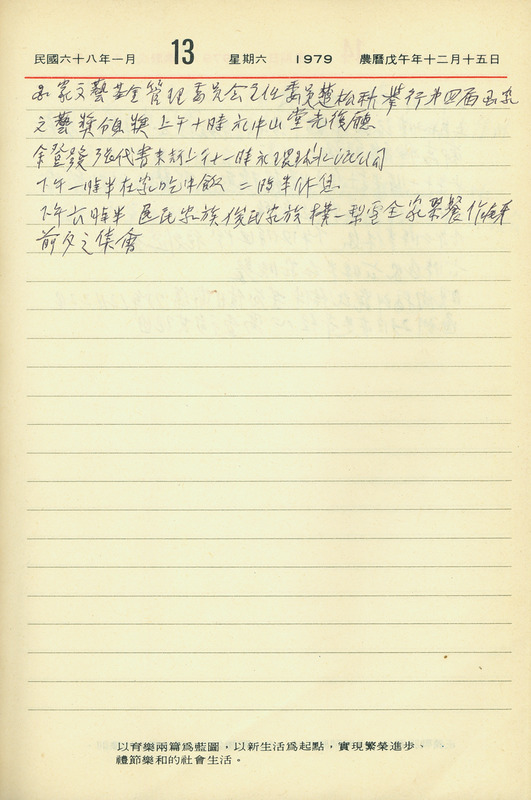 民國六十八年一月 13 星期六 1979 農曆戊午年十二月十五日
國家文藝基金管理委員會主任委員趙松新舉行第四屆國家
文藝獎頒獎 上午十時於中山堂光復廳
余登發 代書 上午十一時 公司
下午一時半在家吃中飯 二時半休息
下午六時半 民家族俊民家族樸一梨雪全家聚餐作
前夕之集會
以育樂兩篇為藍圖，以新生活為起點，實現繁榮進步、
禮節樂和的社會生活。